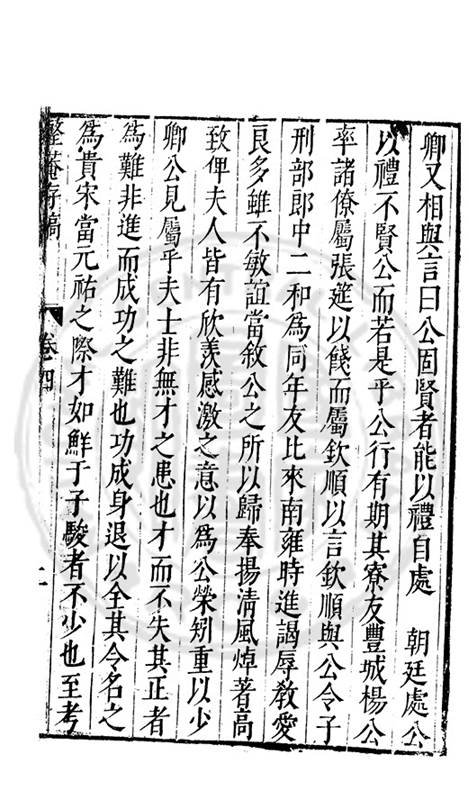 卿又相與言曰公固賢者能以禮自處　朝廷處公
以禮不賢公而若是乎公行有期其寮友豐城楊公
率諸僚屬張筵以餞而屬欽順以言欽順與公令子
刑部郎中二和爲同年友比來南雍時進謁辱教愛
良多雖不敏誼當敘公之所以歸奉揚清風焯著高
致俾夫人皆有欣羨感激之意以爲公榮矧重以少
卿公見屬乎夫士非無才之患也才而不失其正者
爲難非進而成功之難也功成身退以全其令名之
爲貴宋當元祐之際才如鮮于子駿者不少也至考
整菴存稿　卷四